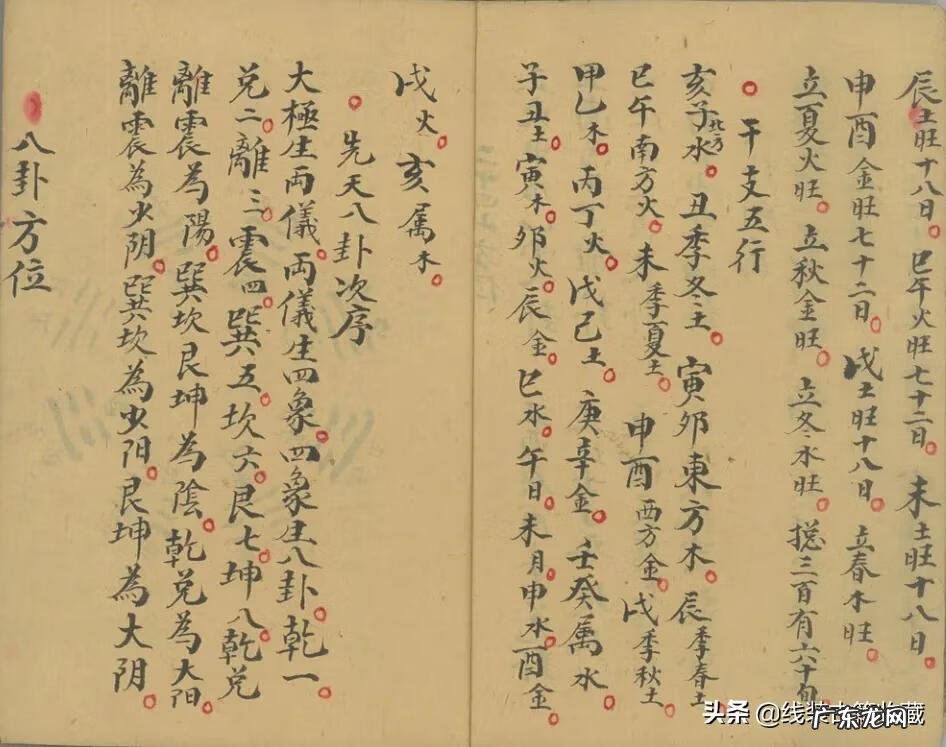 辰土旺十八日。巳午火旺七十二日。未土旺十八日。
申酉金旺七十二日。戌土旺十八日。立春木旺。
立夏火旺。立秋金旺。立冬水旺。摠三百有六十旬。
干支五行
亥子北方水。丑季冬土。寅夘東方木。辰季春土。
巳午南方火。未季夏土。申酉西方金。戌季秋土。
甲乙木。丙丁火。戊己土。庚辛金。壬癸属水。
子丑土。寅木。夘火。辰金。巳水。午日。未月。申水。酉金。
戌火。亥属木。
先天八卦次序
大極生両儀。両儀生四象。四象生八卦。乾一
兑二。離三。震四。巽五。坎六。艮七。坤八。乾兑
離震為陽。巽坎艮坤為陰。乾兑為大阳。
離震為少阴。巽坎為少阳。艮坤為大阴。
八卦方位
头条 @线装古籍收藏
广东龙网